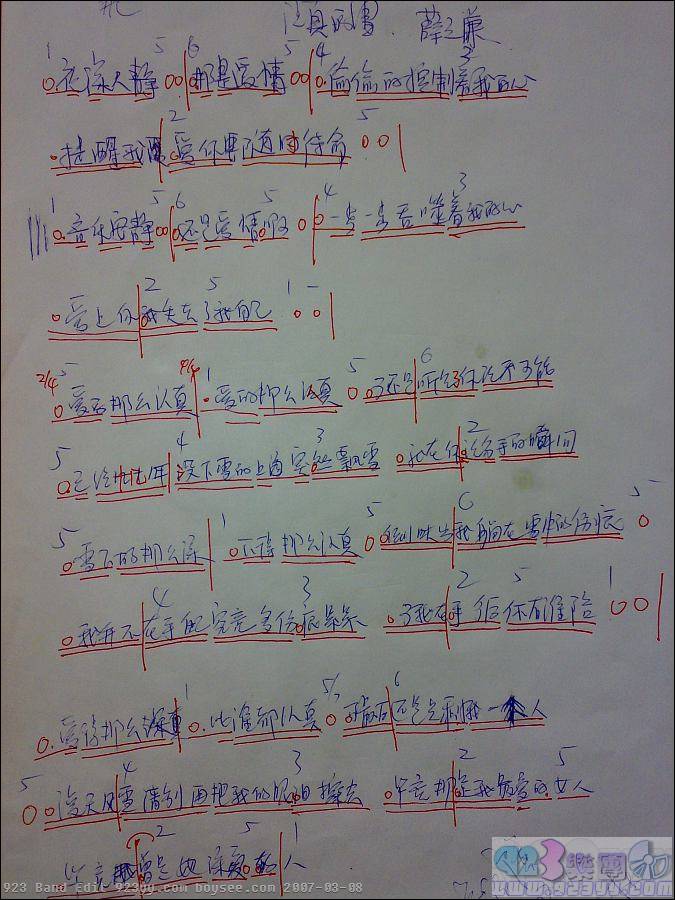 认真的雪 . 薛之谦
1 5 6 5 4 3
0 夜深人静 00 那是爱情 00 偷偷的控制着我的心
2 5
提醒我 爱你要随时待命 00
1 5 6 5 4 3
0 音乐安静 00 还是爱情啊 0 0 一步一步吞噬着我的心
2 5 1 -
0 爱上你我失去了我自己
2/4 5 4/4 1 5 6
0 爱得那么认真 爱的那么认真 0 可还是听见你说不可能
5 4 3 2
0 已经 没下雪的上海突然飘雪 我在你说分手的瞬间
5 1 5 6 5
雪下的那么深 下得那么认真 0 倒映出我躺在雪中的伤痕 0
4 3 2 5 1
0 我并不在乎 究竟多伤痕累累 可我在乎 你有谁陪 00
1 6
0 爱得那么 0 比谁都认真 0 可最后还是只剩我一 人
5 4 3 2 5
0 0 漫天风雪请别再把我的眼泪擦去 毕竟那是我最爱的女人
2 5 1
毕竟 曾是她深爱 人
923 Band Edit 923yy.com boysee.com 2007-03-08
923樂雩和
www.923yy.com